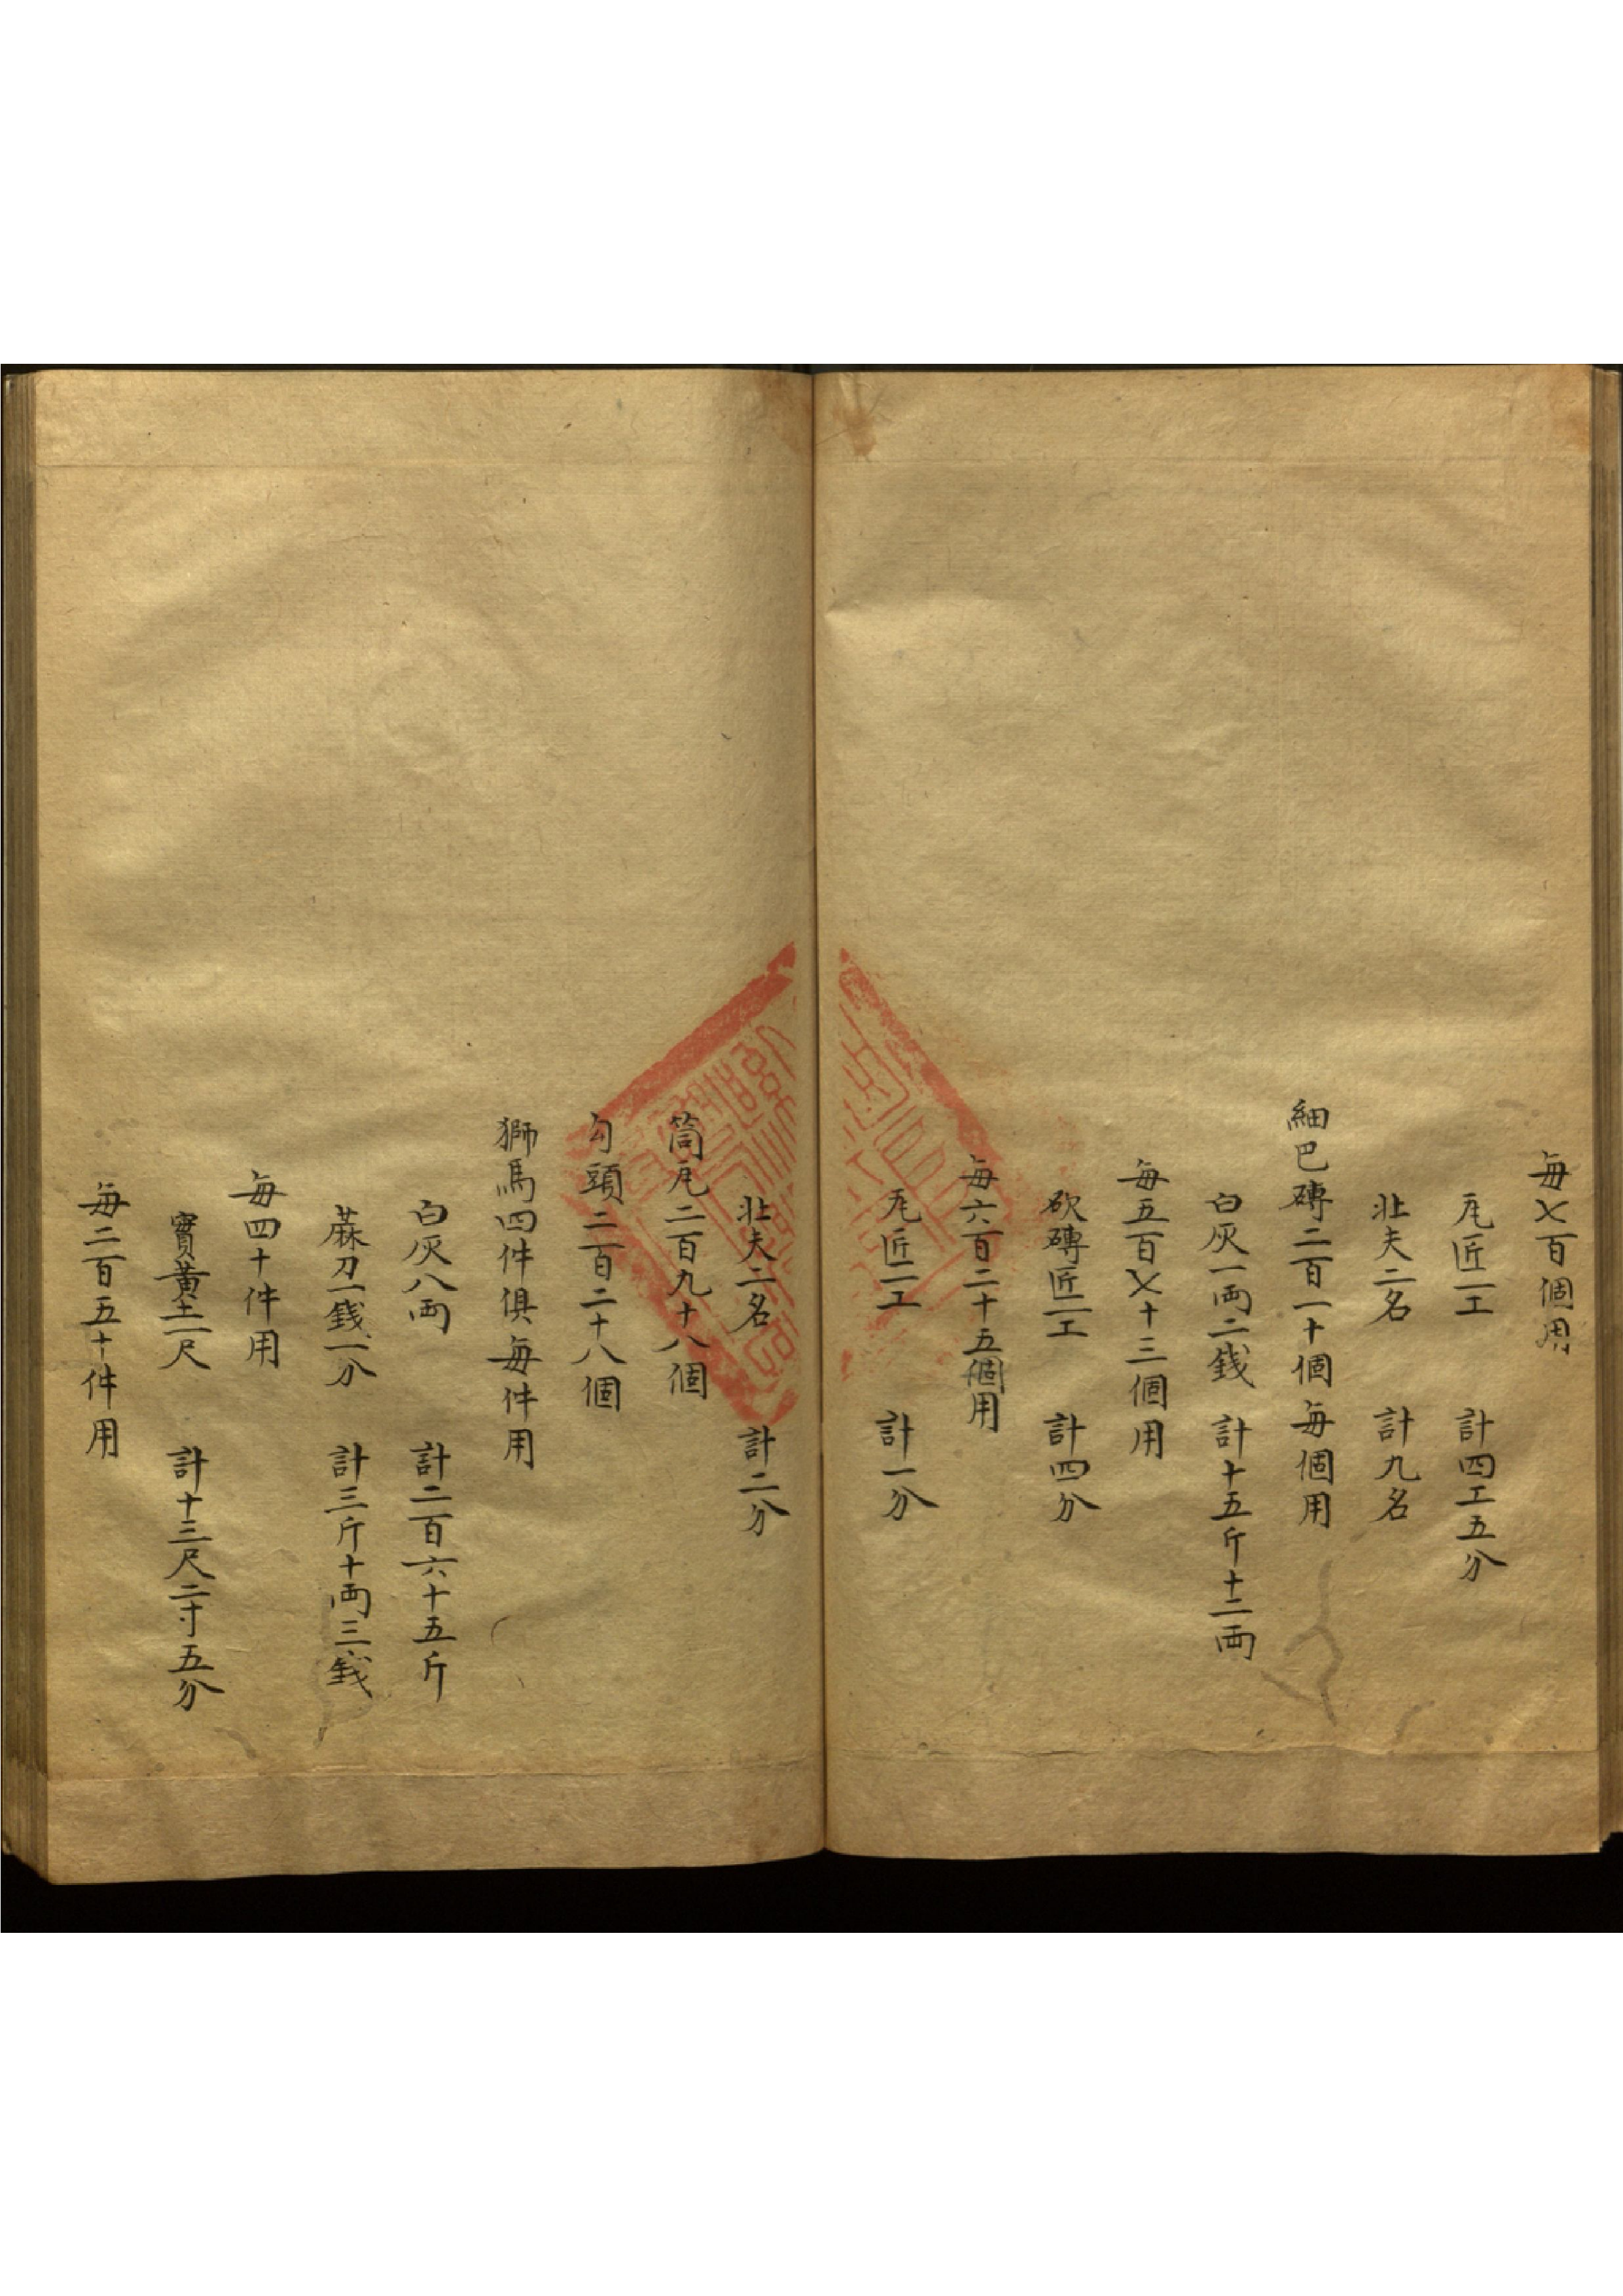 每七百個用
瓦匠一工　計四工五分
壯夫二名　計九名
細巴磚二百一十個每個用
白灰一両二錢　計十五斤十二両
每五百七十三個用
砍磚匠一工　計四分
每六百二十五個用
瓦匠一工　計一分
壯夫二名　計二分
筒瓦二百九十八個
勾頭二百二十八個
獅馬四件俱每件用
白灰八両　計二百六十五斤
蔴刀一錢一分　計三斤十両三錢
每四十件用
實黃土一尺　計十三尺二寸五分
每二百五十件用